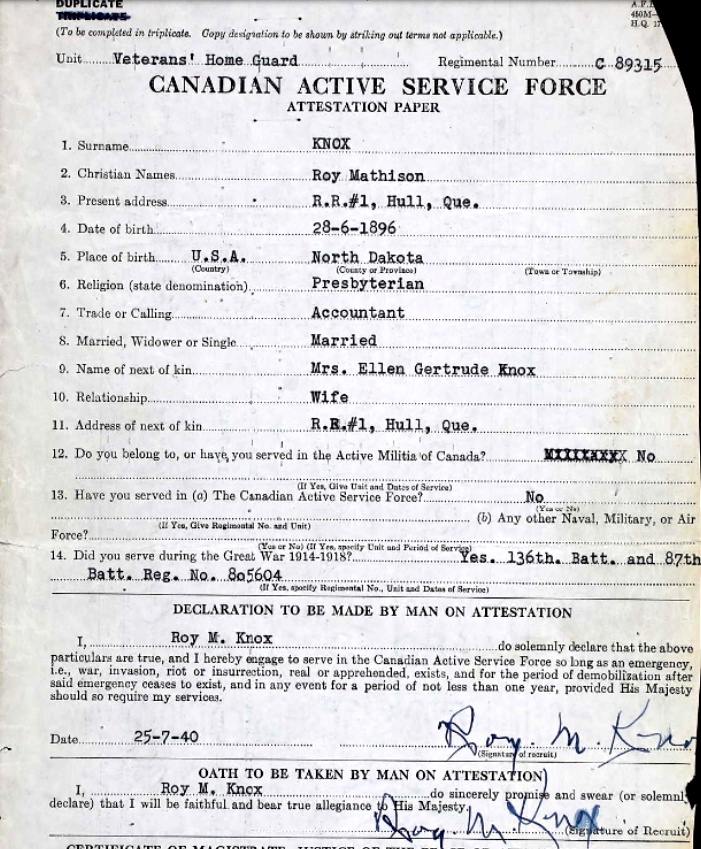 DUPLICATE
TRIPLICATE
A.F.
450M—
H.Q. 17
(To be completed in triplicate. Copy designation to be shown by striking out terms not applicable.)
Unit Veterans' Home Guard Regimental Number C 89315
CANADIAN ACTIVE SERVICE FORCE
ATTESTATION PAPER
1. Surname KNOX
2. Christian Names Roy Mathison
3. Present address R.R.#1, Hull, Que.
4. Date of birth 28-6-1896
5. Place of birth U.S.A. North Dakota
(Country) (County or Province) (Town or Township)
6. Religion (state denomination) Presbyterian
7. Trade or Calling Accountant
8. Married, Widower or Single Married
9. Name of next of kin Mrs. Ellen Gertrude Knox
10. Relationship Wife
11. Address of next of kin R.R.#1, Hull, Que.
12. Do you belong to, or have you served in the Active Militia of Canada? No
(If Yes, Give Unit and Dates of Service)
13. Have you served in (a) The Canadian Active Service Force? No
(Yes or No)
(b) Any other Naval, Military, or Air
(If Yes, Give Regimental No. and Unit)
Force?
(Yes or No) (If Yes, specify Unit and Period of Service)
14. Did you serve during the Great War 1914-1918? Yes. 136th. Batt. and 87th
Batt. Reg. No. 805604
(If Yes, specify Regimental No., Unit and Dates of Service)
DECLARATION TO BE MADE BY MAN ON ATTESTATION
I, Roy M. Knox do solemnly declare that the above
particulars are true, and I hereby engage to serve in the Canadian Active Service Force so long as an emergency,
i.e., war, invasion, riot or insurrection, real or apprehended, exists, and for the period of demobilization after
said emergency ceases to exist, and in any event for a period of not less than one year, provided His Majesty
should so require my services.
Date 25-7-40 Roy. M. Kno
(Signature of recruit)
OATH TO BE TAKEN BY MAN ON ATTESTATION
I, Roy M. Knox do sincerely promise and swear (or solemnly
declare) that I will be faithful and bear true allegiance to His Majesty.
Roy. M. Knox (Signature of Recruit)